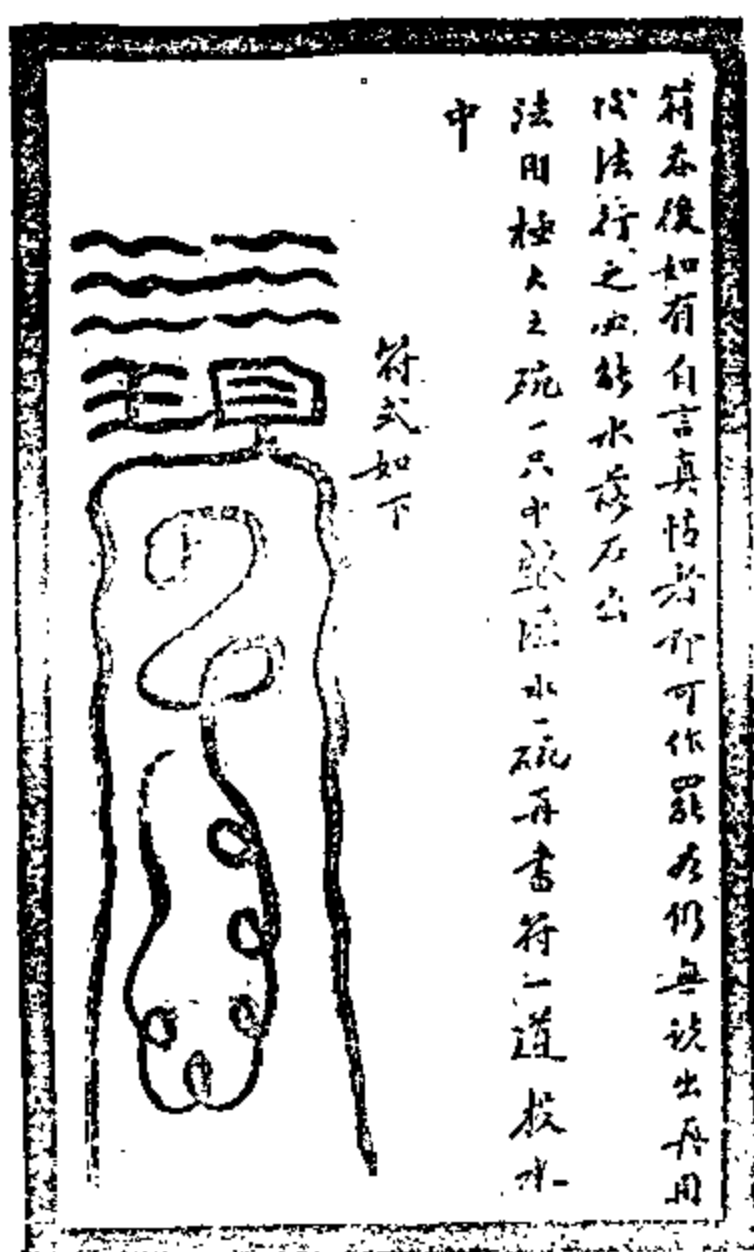 符吞後如有自言真情者即可作罷若仍無說出再用
後法行之必能水落石出
法用極大之碗一只中盛法水一碗再書符一道投水
中
符式如下